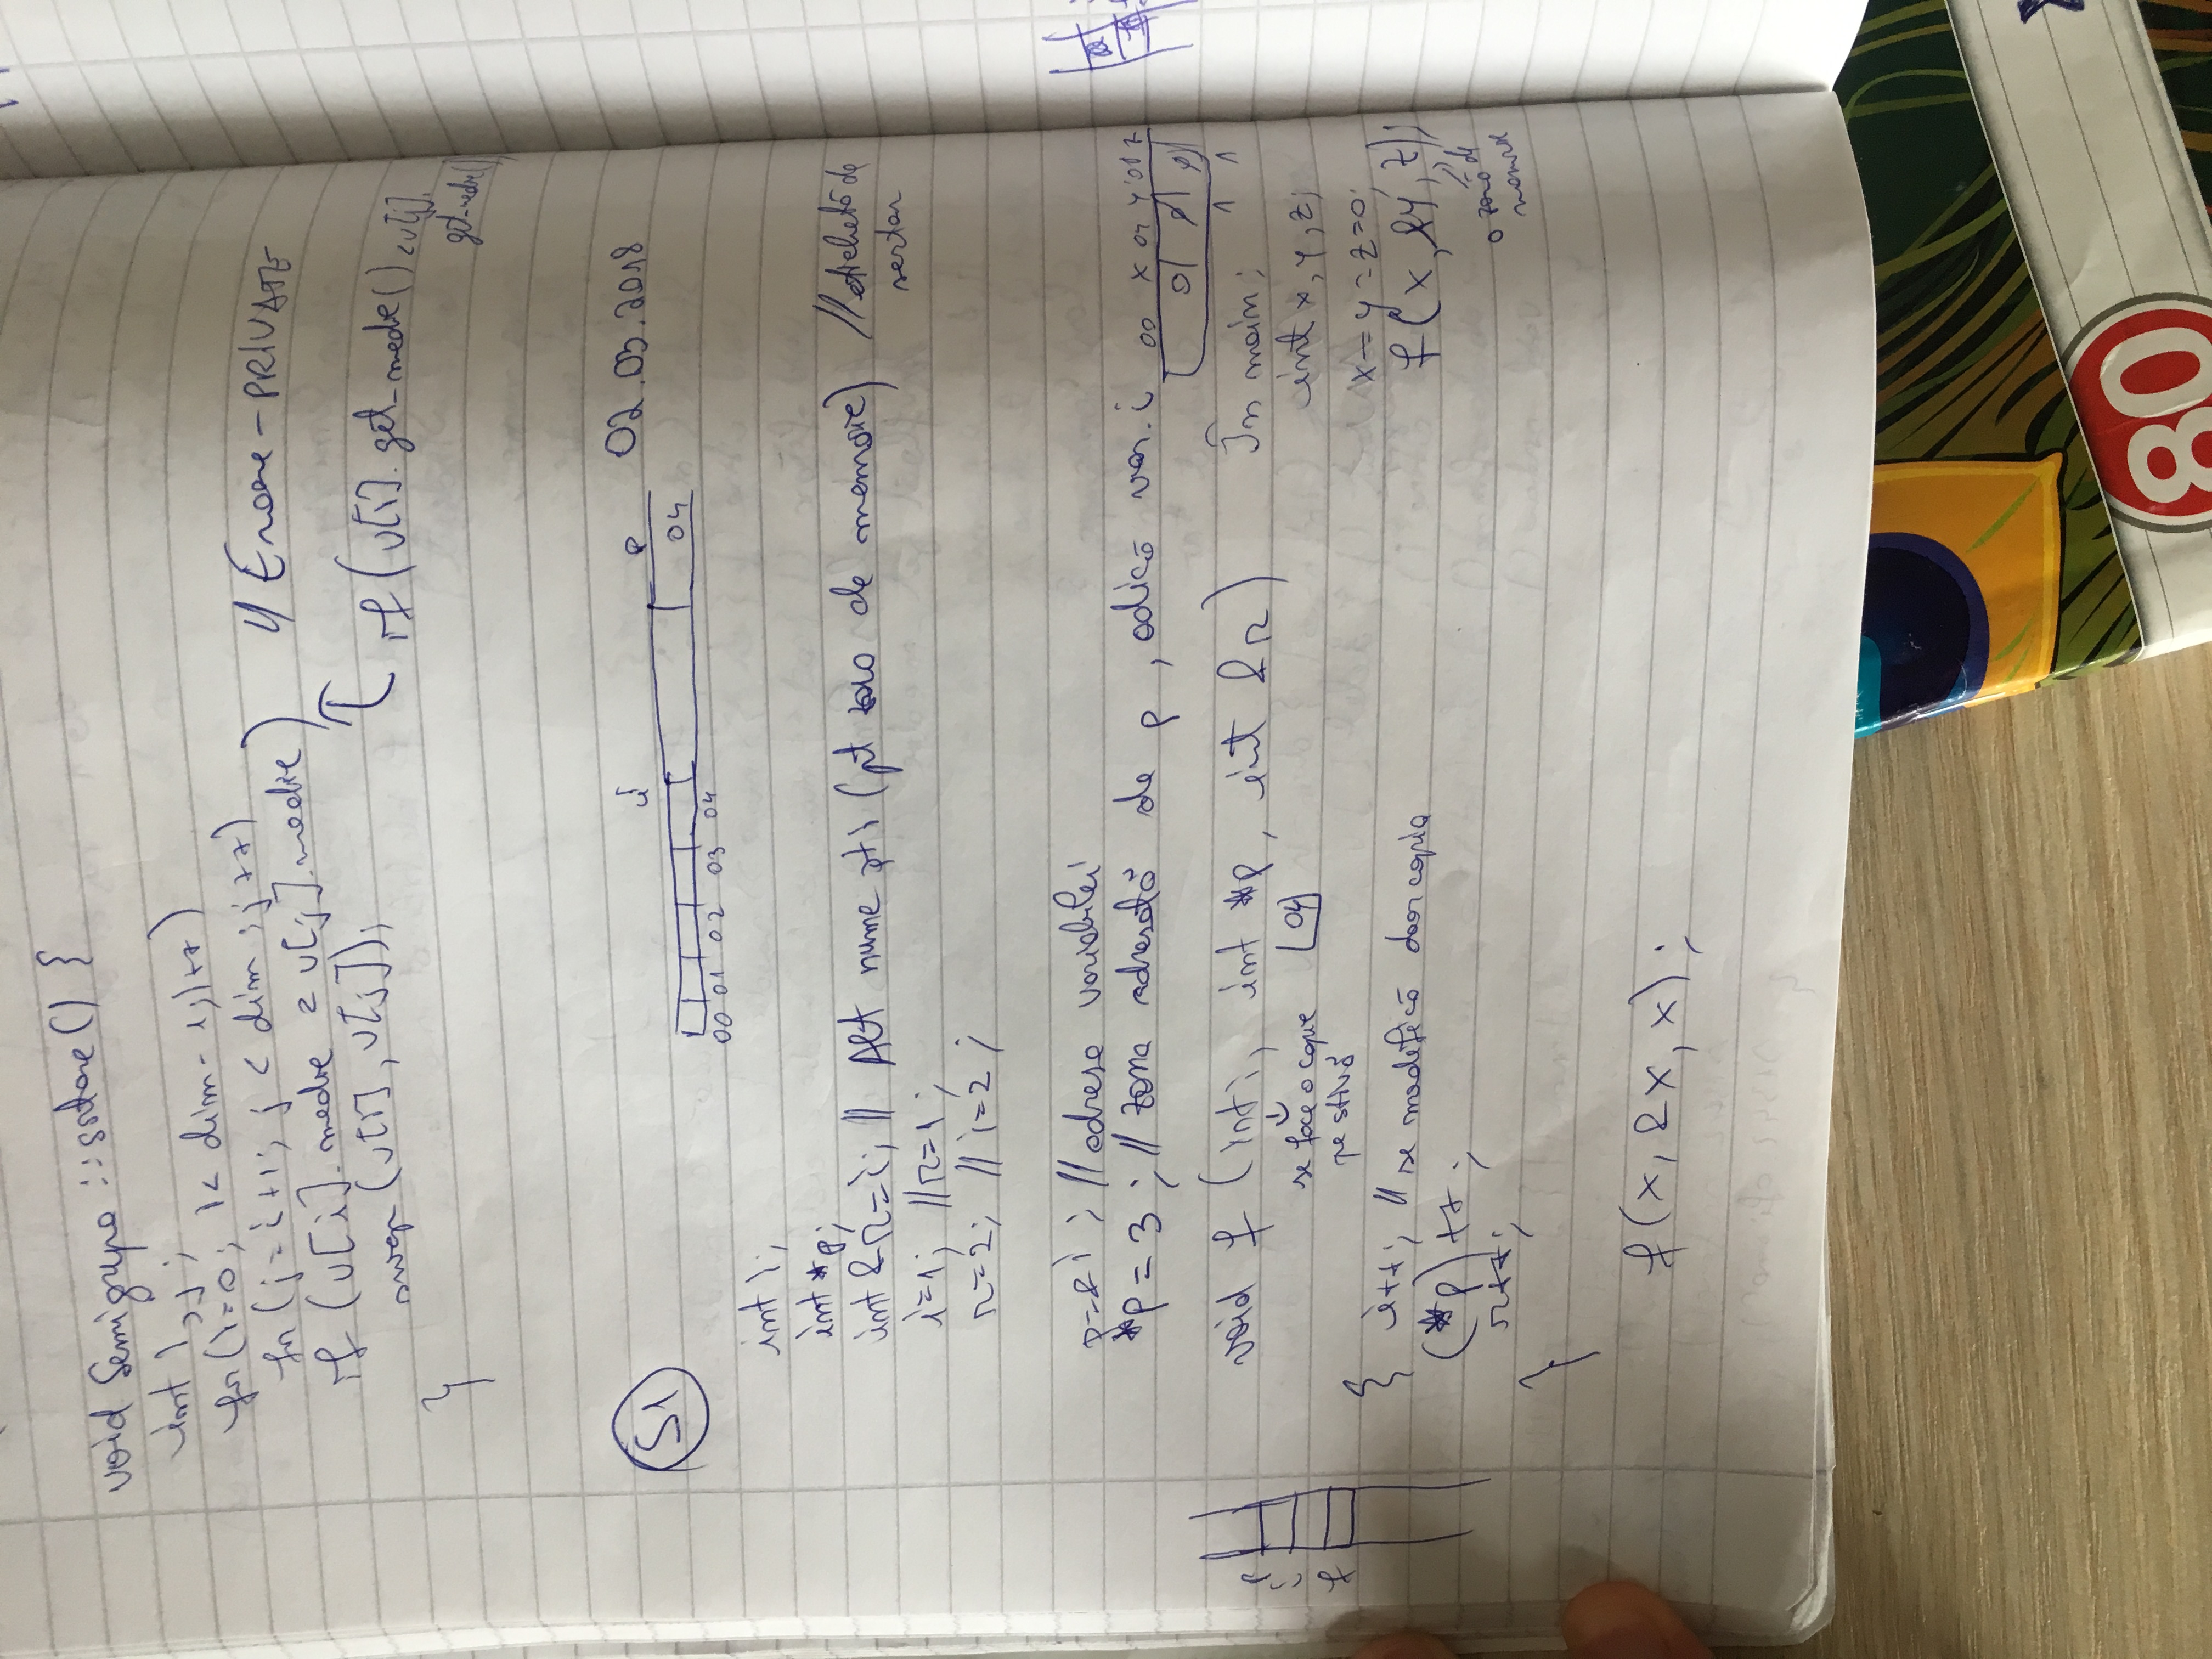 void Semigrupa::sortare() {
int i, j;
for(i=0; i< dim-1; i++)
for(j=i+1; j < dim; j++)
if (v[i].medie < v[j].medie) // Eroare - PRIVATE
swap(v[i], v[j]);
if (v[i].get_medie() < v[j].
get_medie()
}
S1
02.03.2018
i
p
04
00 01 02 03 04
int i;
int *p;
int &r=i; // Alt nume pt i (pt zona de memorie) // etichetă de
sertar
i=1; // r=1;
r=2; // i=2;
p=&i; // adresa variabilei
*p=3; // zona adresată de p, adică var. i
00 x 04 y z
0 0 0
1 1
void f (int i, int *p, int &r)
se face o copie
pe stivă
04
În main:
int x, y, z;
x=y=z=0;
f(x, &y, z);
o zonă de
memorie
r
i
f
{ i++; // se modifică doar copia
(*p)++;
r++;
}
f(x, &x, x);
80